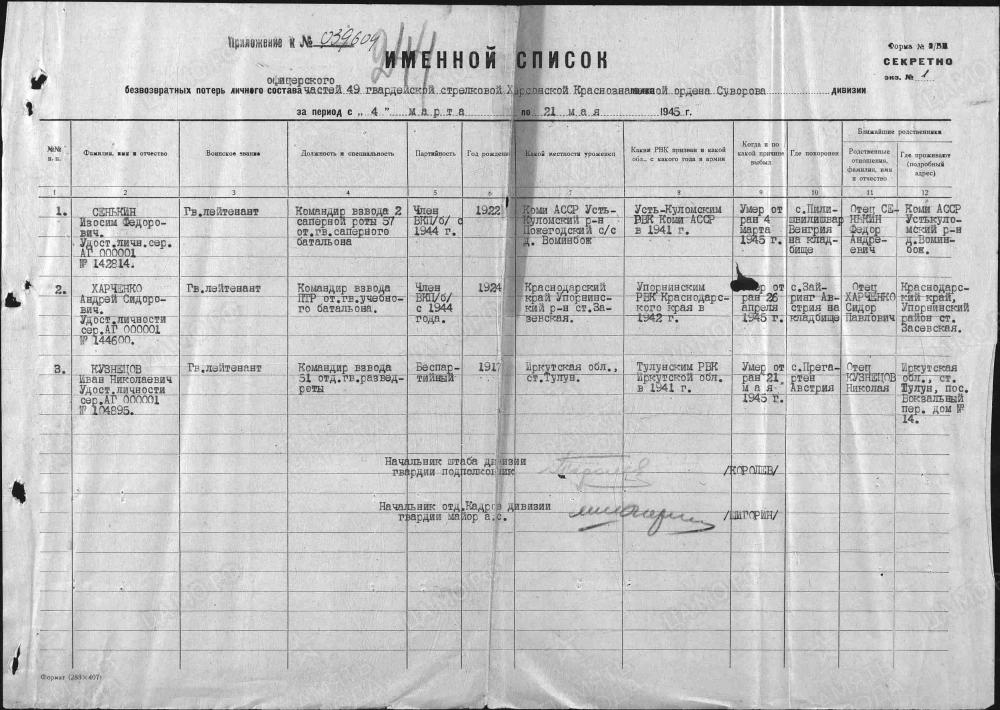 Приложение к № 039604
244
Форма № 2/БП
ИМЕННОЙ СПИСОК
СЕКРЕТНО
экз. № 1
офицерского
безвозвратных потерь личного состава частей 49 гвардейской стрелковой Херсонской Краснознаменной ордена Суворова дивизии
за период с „ 4 " марта по 21 мая 1945 г.
№№ п. п.
Фамилия, имя и отчество
Воинское звание
Должность и специальность
Партийность
Год рождения
Какой местности уроженец
Каким РВК призван и какой обл., с какого года в армии
Когда и по какой причине выбыл
Где похоронен
Ближайшие родственники
Родственные отношения, фамилия, имя и отчество
Где проживают (подробный адрес)
1 2 3 4 5 6 7 8 9 10 11 12
1.
СЕНЬКИН
Изосим Федоро-
вич.
Удост.личн.сер.
АГ 000001
№ 142814.
Гв.лейтенант
Командир взвода 2
саперной роты 57
от.гв.саперного
батальона
Член
ВКП/б/ с
1944 г.
1922
Коми АССР Усть-
Куломский р-н
Пожегодский с/с
д. Воминбож
Усть-Куломским
РВК Коми АССР
в 1941 г.
Умер от
ран 4
марта
1945 г.
с.Пили-
швиливар
Венгрия
на клад-
бище
Отец СЕ-
НЬКИН
Федор
Андре-
евич
Коми АССР
Устькуло-
мский р-н
д.Воминь-
бож.
2.
ХАРЧЕНКО
Андрей Сидоро-
вич.
Удост.личности
сер.АГ 000001
№ 144600.
Гв.лейтенант
Командир взвода
ПТР от.гв.учебно-
го батальона.
Член
ВКП/б/
с 1944
года.
1924
Краснодарский
край Упорнинс-
кий р-н ст.За-
зевская.
Упорнинским
РВК Краснодарс-
кого края в
1942 г.
Умер от
ран 26
апреля
1945 г.
с.Зай-
ринг Ав-
стрия на
кладбище
Отец
ХАРЧЕНКО
Сидор
Павлович
Краснодарс-
кий край,
Упорнинский
район ст.
Засевская.
3.
КУЗНЕЦОВ
Иван Николаевич
Удост.личности
сер.АГ 000001
№ 104895.
Гв.лейтенант
Командир взвода
51 отд.гв.развед-
роты
Беспар-
тийный
1917
Иркутская обл.,
ст.Тулун.
Тулунским РВК
Иркутской обл.
в 1941 г.
Умер от
ран 21
м а я
1945 г.
с.Прега-
ртен
Австрия
Отец
КУЗНЕЦОВ
Николая
Иркутская
обл., ст.
Тулун, пос.
Вокзальный
пер. дом №
14.
Начальник штаба дивизии
гвардии подполковник
/КОРОЛЕВ/
Начальник отд.Кадров дивизии
гвардии майор а/с.
/ШИГОРИН/
Формат (288×407)